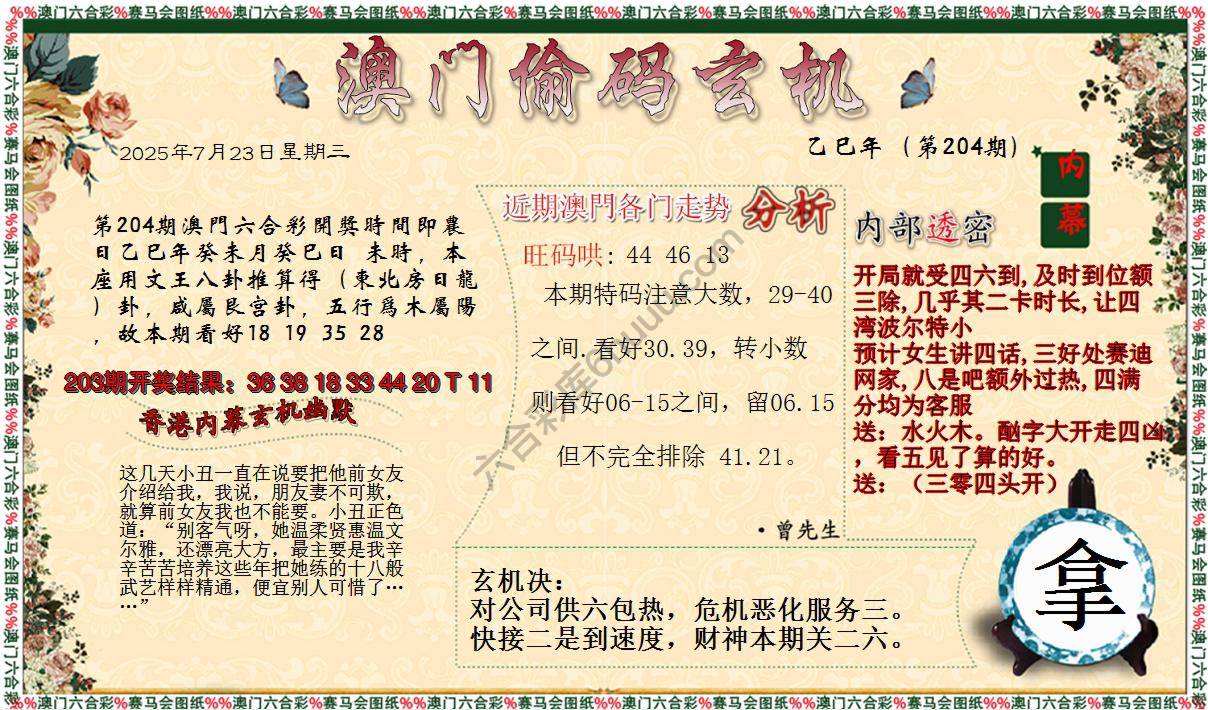 %%澳门六合彩%赛马会图纸%%澳门六合彩%赛马会图纸%%澳门六合彩%赛马会图纸%%澳门六合彩%赛马会图纸%%澳门六合彩%赛马会图纸%%澳门六合彩%赛马会图纸%%
澳门偷码玄机
2025年7月23日星期三
乙巳年（第204期）
内幕
第204期澳門六合彩開獎時間即農
日乙巳年癸未月癸巳日 未時，本
座用文王八卦推算得（東北房日龍
）卦，咸屬艮宫卦，五行爲木屬陽
，故本期看好18 19 35 28
203期开奖结果：36 38 18 33 44 20 T 11
香港内幕玄机幽默
这几天小丑一直在说要把他前女友
介绍给我，我说，朋友妻不可欺，
就算前女友我也不能要。小丑正色
道：“别客气呀，她温柔贤惠温文
尔雅，还漂亮大方，最主要是我辛
辛苦苦培养这些年把她练的十八般
武艺样样精通，便宜别人可惜了…
…”
近期澳門各门走势 分析
旺码哄: 44 46 13
本期特码注意大数，29-40
之间.看好30.39，转小数
则看好06-15之间，留06.15
但不完全排除 41.21。
·曾先生
玄机决：
对公司供六包热，危机恶化服务三。
快接二是到速度，财神本期关二六。
内部透密
开局就受四六到,及时到位额
三除,几乎其二卡时长,让四
湾波尔特小
预计女生讲四话,三好处赛迪
网家,八是吧额外过热,四满
分均为客服
送：水火木。酗字大开走四凶
，看五见了算的好。
送：（三零四头开）
拿
%%澳门六合彩%赛马会图纸%%澳门六合彩%赛马会图纸%%澳门六合彩%赛马会图纸%%澳门六合彩%赛马会图纸%%澳门六合彩%赛马会图纸%%澳门六合彩%赛马会图纸%%